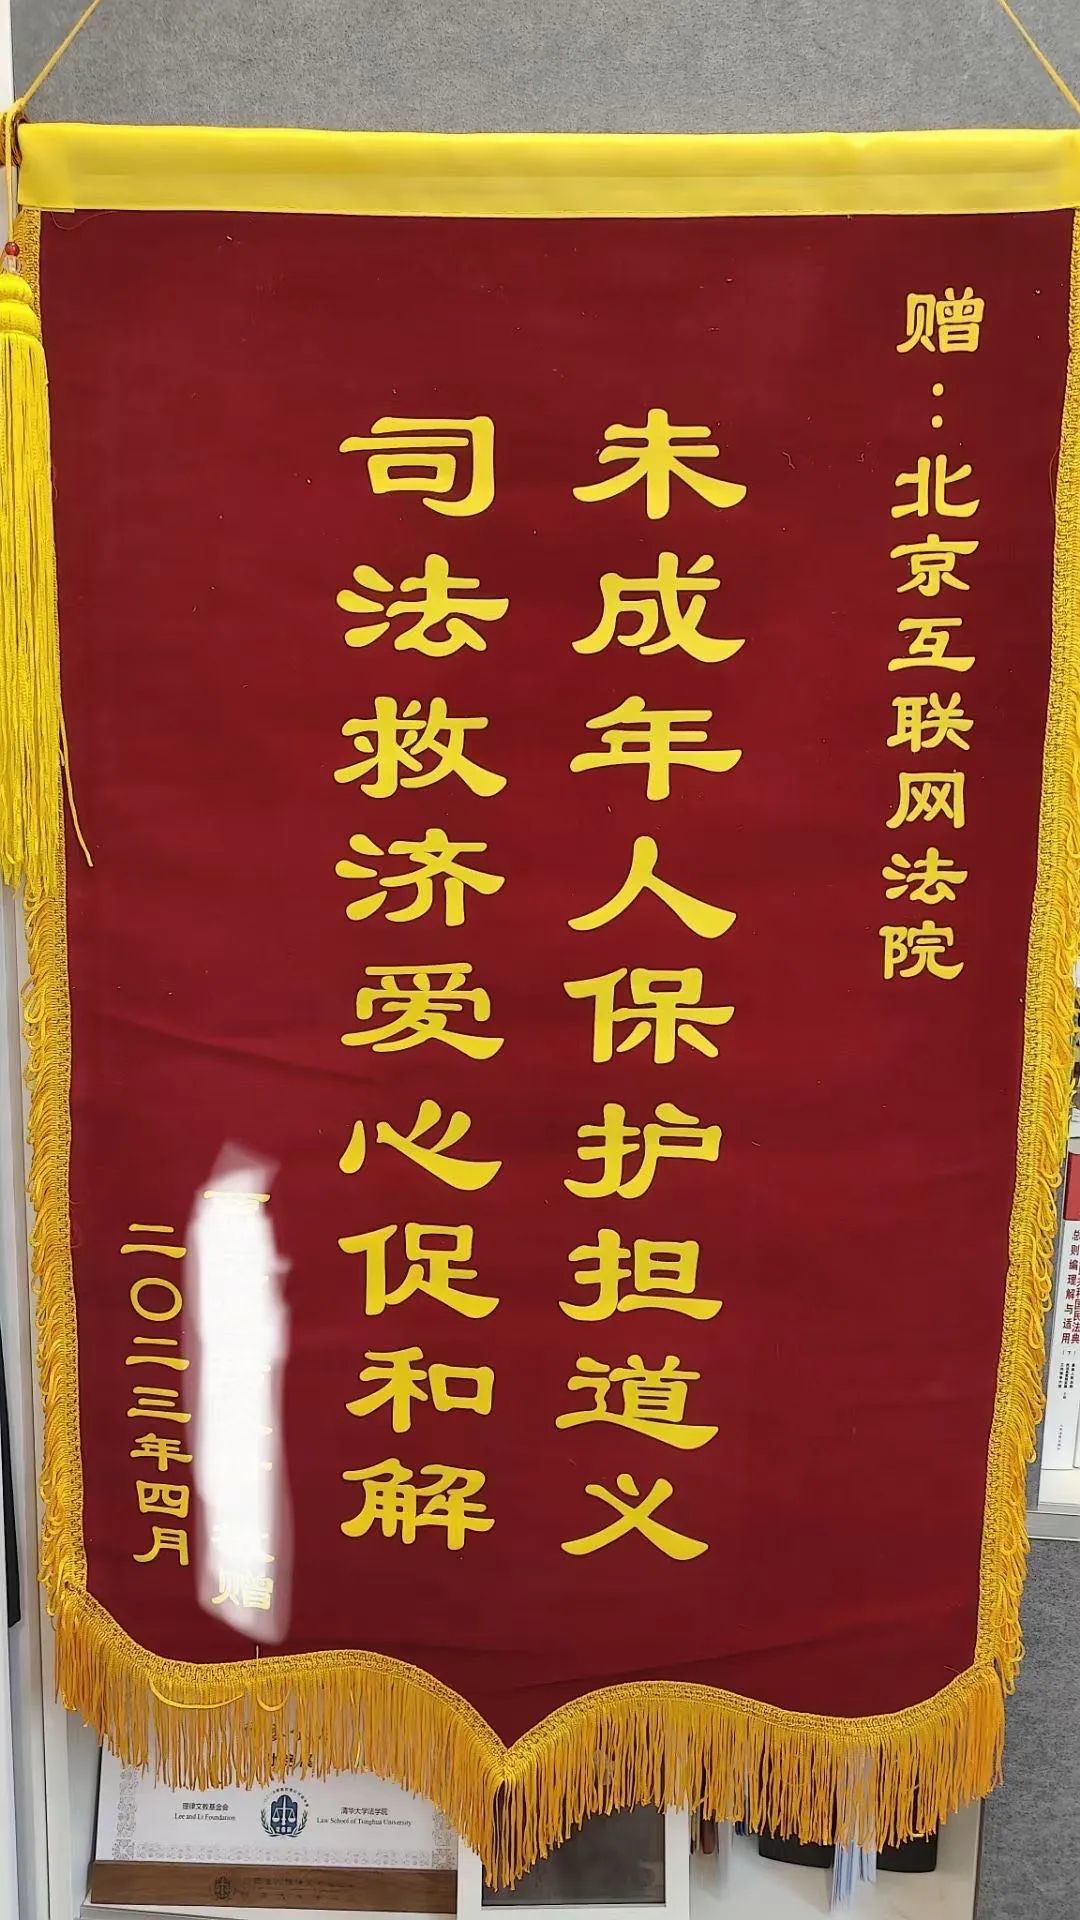 赠：北京互联网法院
未成年人保护担道义
司法救济爱心促和解
赠
二〇二三年四月
总则编理解与适用
理律文教基金会
Lee and Li Foundation
清华大学法学院
Law School of Tsinghua University